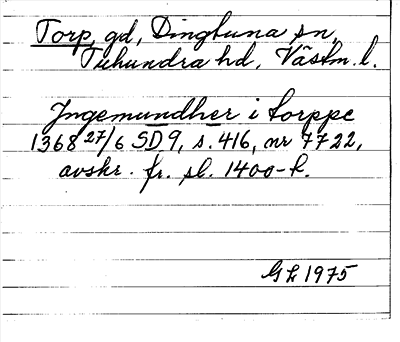 Torp, gd, Dingtuna sn,
Tuhundra hd, Västm. l.
Jngemundher i torppe
1368 27/6 SD 9, s. 416, nr 7722,
avskr. fr. sl. 1400-t.
GL 1975